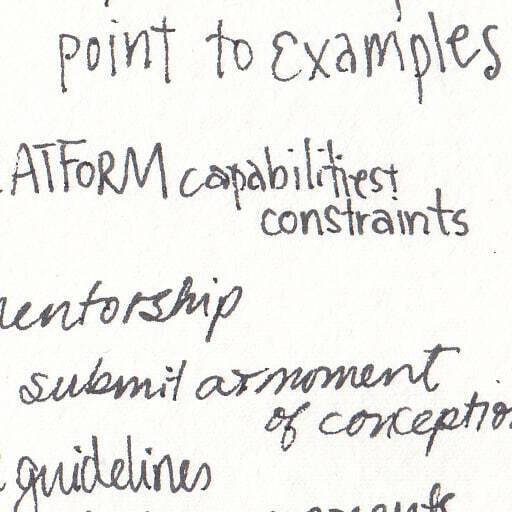 point to Examples
ATFORM capabilities+
constraints
entorship
submit at moment
of conceptio
guidelines